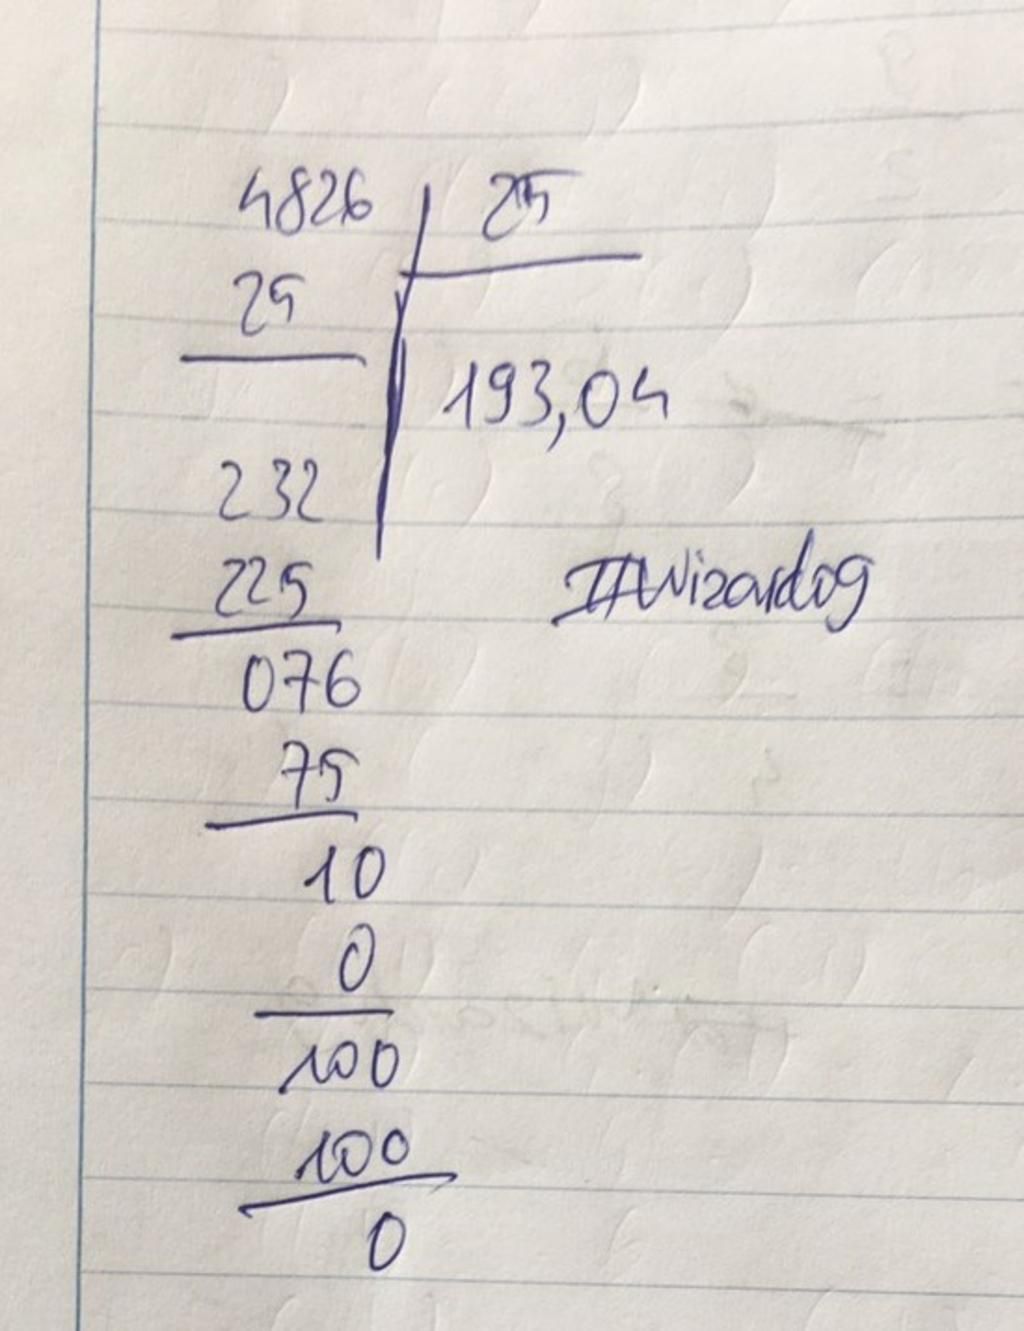 4826 25
25
193,04
232
225
IIWizardog
076
75
10
0
100
100
0